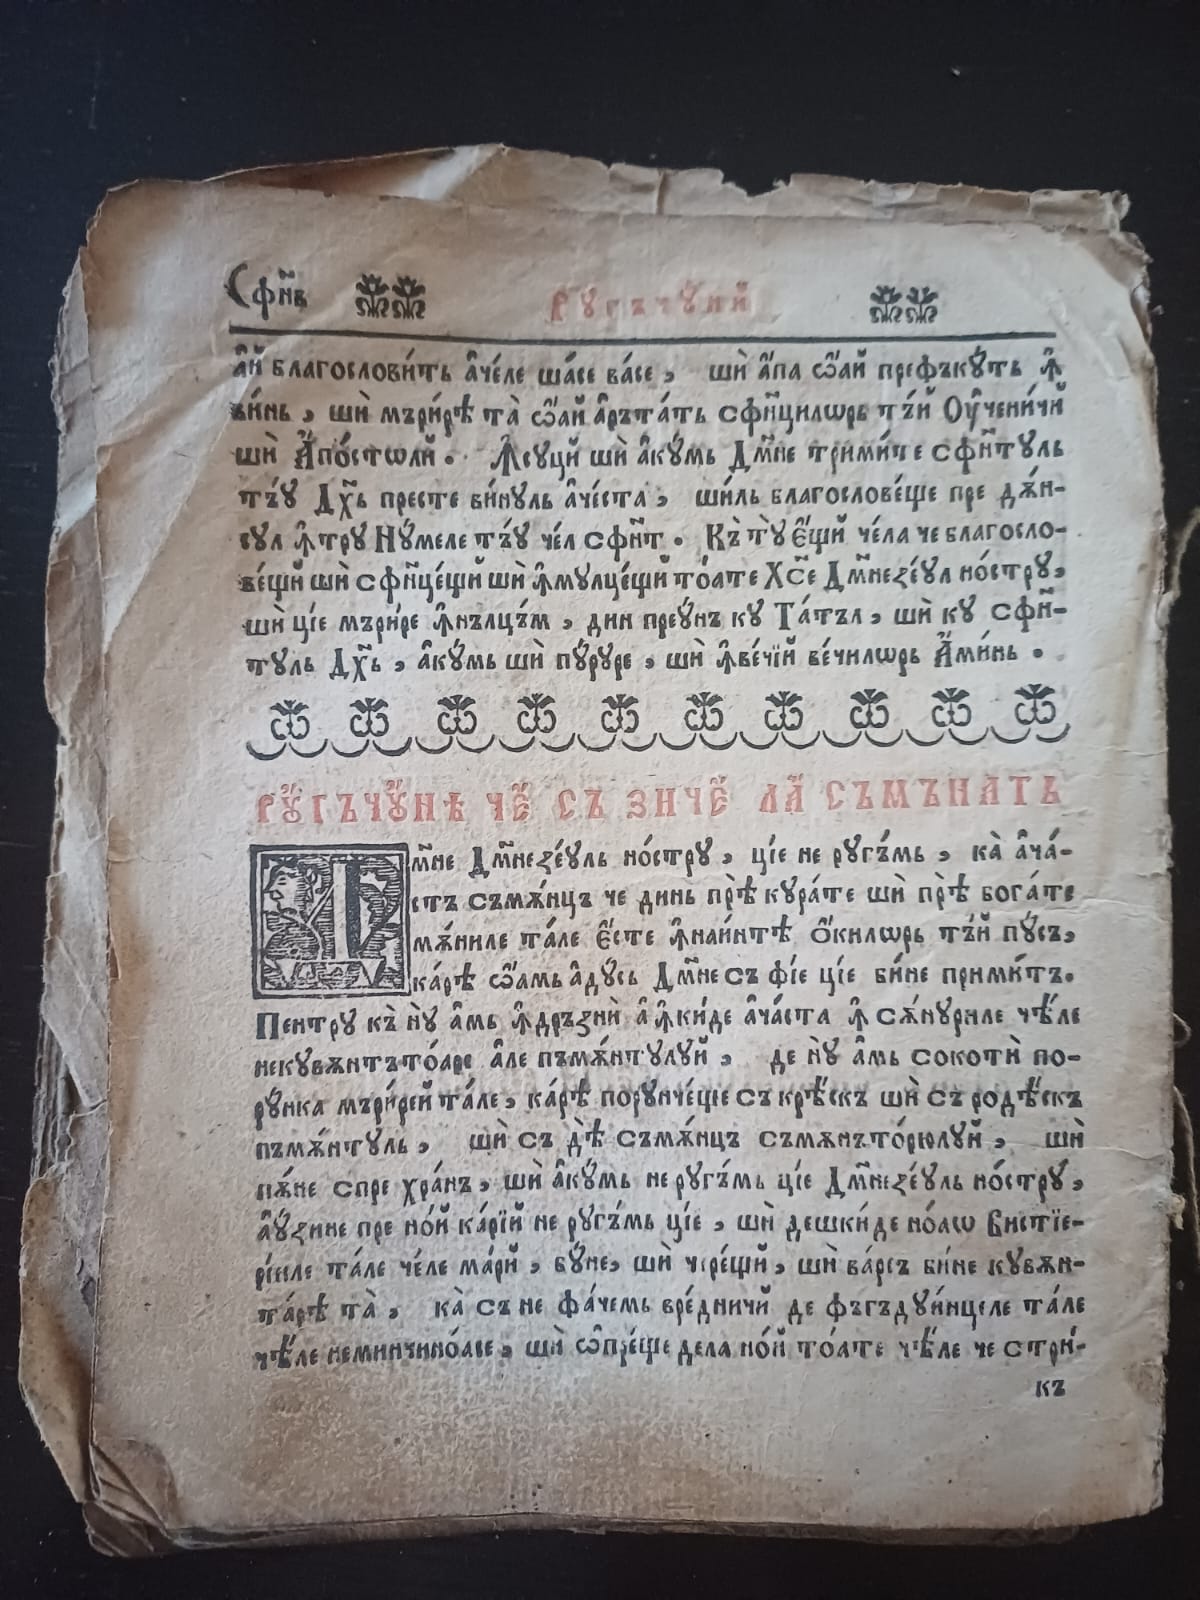 Сфн҃в Ругъчүнй
ай благослови́ть аче́ле ша́се ва́се, шѝ а́па ѡ́ай префъку́ть ꙟ
ви́нь, шѝ мърі́рѣ та̀ ѡ́ай аръта́ть сфн҃цилѡрь тъ́й Оу҆чени́чй
шѝ Апо́столй. Ꙟсуцй шѝ аку́мь Дм҃не трими́те сфн҃туль
тъ́у Дх҃ь престе ви́нуль аче́ста, шиль благослове́ще пре дѫ́н-
сул ꙟтру Ну́меле тъ́у че́л сфн҃т. Къ ту є́щй че́ла че благосло-
ве́щй шѝ сфн҃це́щй шѝ ꙟмулце́щй то́ате Хс҃е Дм҃неѕе́ул но́стру,
шѝ ціе мърі́ре ꙟнълцъ́м, дин преу́нъ ку Та́тъл, шѝ ку сфн҃-
туль Дх҃ь, аку́мь шѝ пу́руре, шѝ ꙟве́чїй ве́чилѡрь Ами́нь.
РУГЪЧУНѢ ЧЕ СЪ ЗИЧЕ ЛА СЪМЪНАТЬ
Дм҃не Дм҃неѕе́уль но́стру, ціе не ругъ́мь, ка̀ ача́-
стъ съмѫ́нцъ че динь прѣ кура́те шѝ прѣ бога́те
мѫ́ниле та́ле є́сте ꙟнаи́нтѣ о́килѡрь тъ́й пу́съ,
ка́рѣ ѡ́амь аду́сь Дм҃не съ фі́е ціе бине прими́тъ.
Пентру къ ну амь ꙟдръзнѝ а ꙟки́де ача́ста ꙟ сѫ́нуриле чѣ́ле
некувѫнтъто́аре але пъмѫ́нтулуй, де ну амь сокотѝ по-
ру́нка мърі́рей та́ле, ка́рѣ порунче́ще съ крѣ́скъ шѝ съ родѣ́скъ
пъмѫ́нтуль, шѝ съ дѣ̀ съмѫ́нцъ съмѫнъто́рюлуй, шѝ
пѫ́не спре хра́нъ, шѝ аку́мь не ругъ́мь ціе Дм҃неѕе́уль но́стру,
ау́зине пре но́й ка́рїй не ругъ́мь ціе, шѝ дешки́де но́аѡ Вистїе-
рі́еле та́ле че́ле ма́рй, бу́не, шѝ чере́щй, шѝ ва́рсъ би́не кувѫн-
та́рѣ та̀, ка̀ съ не фа́чемь вре́дничй де фъгъдуи́нцеле та́ле
чѣ́ле неминчино́асе, шѝ ѡпре́ще дела но́й то́ате чѣ́ле че стри́-
къ